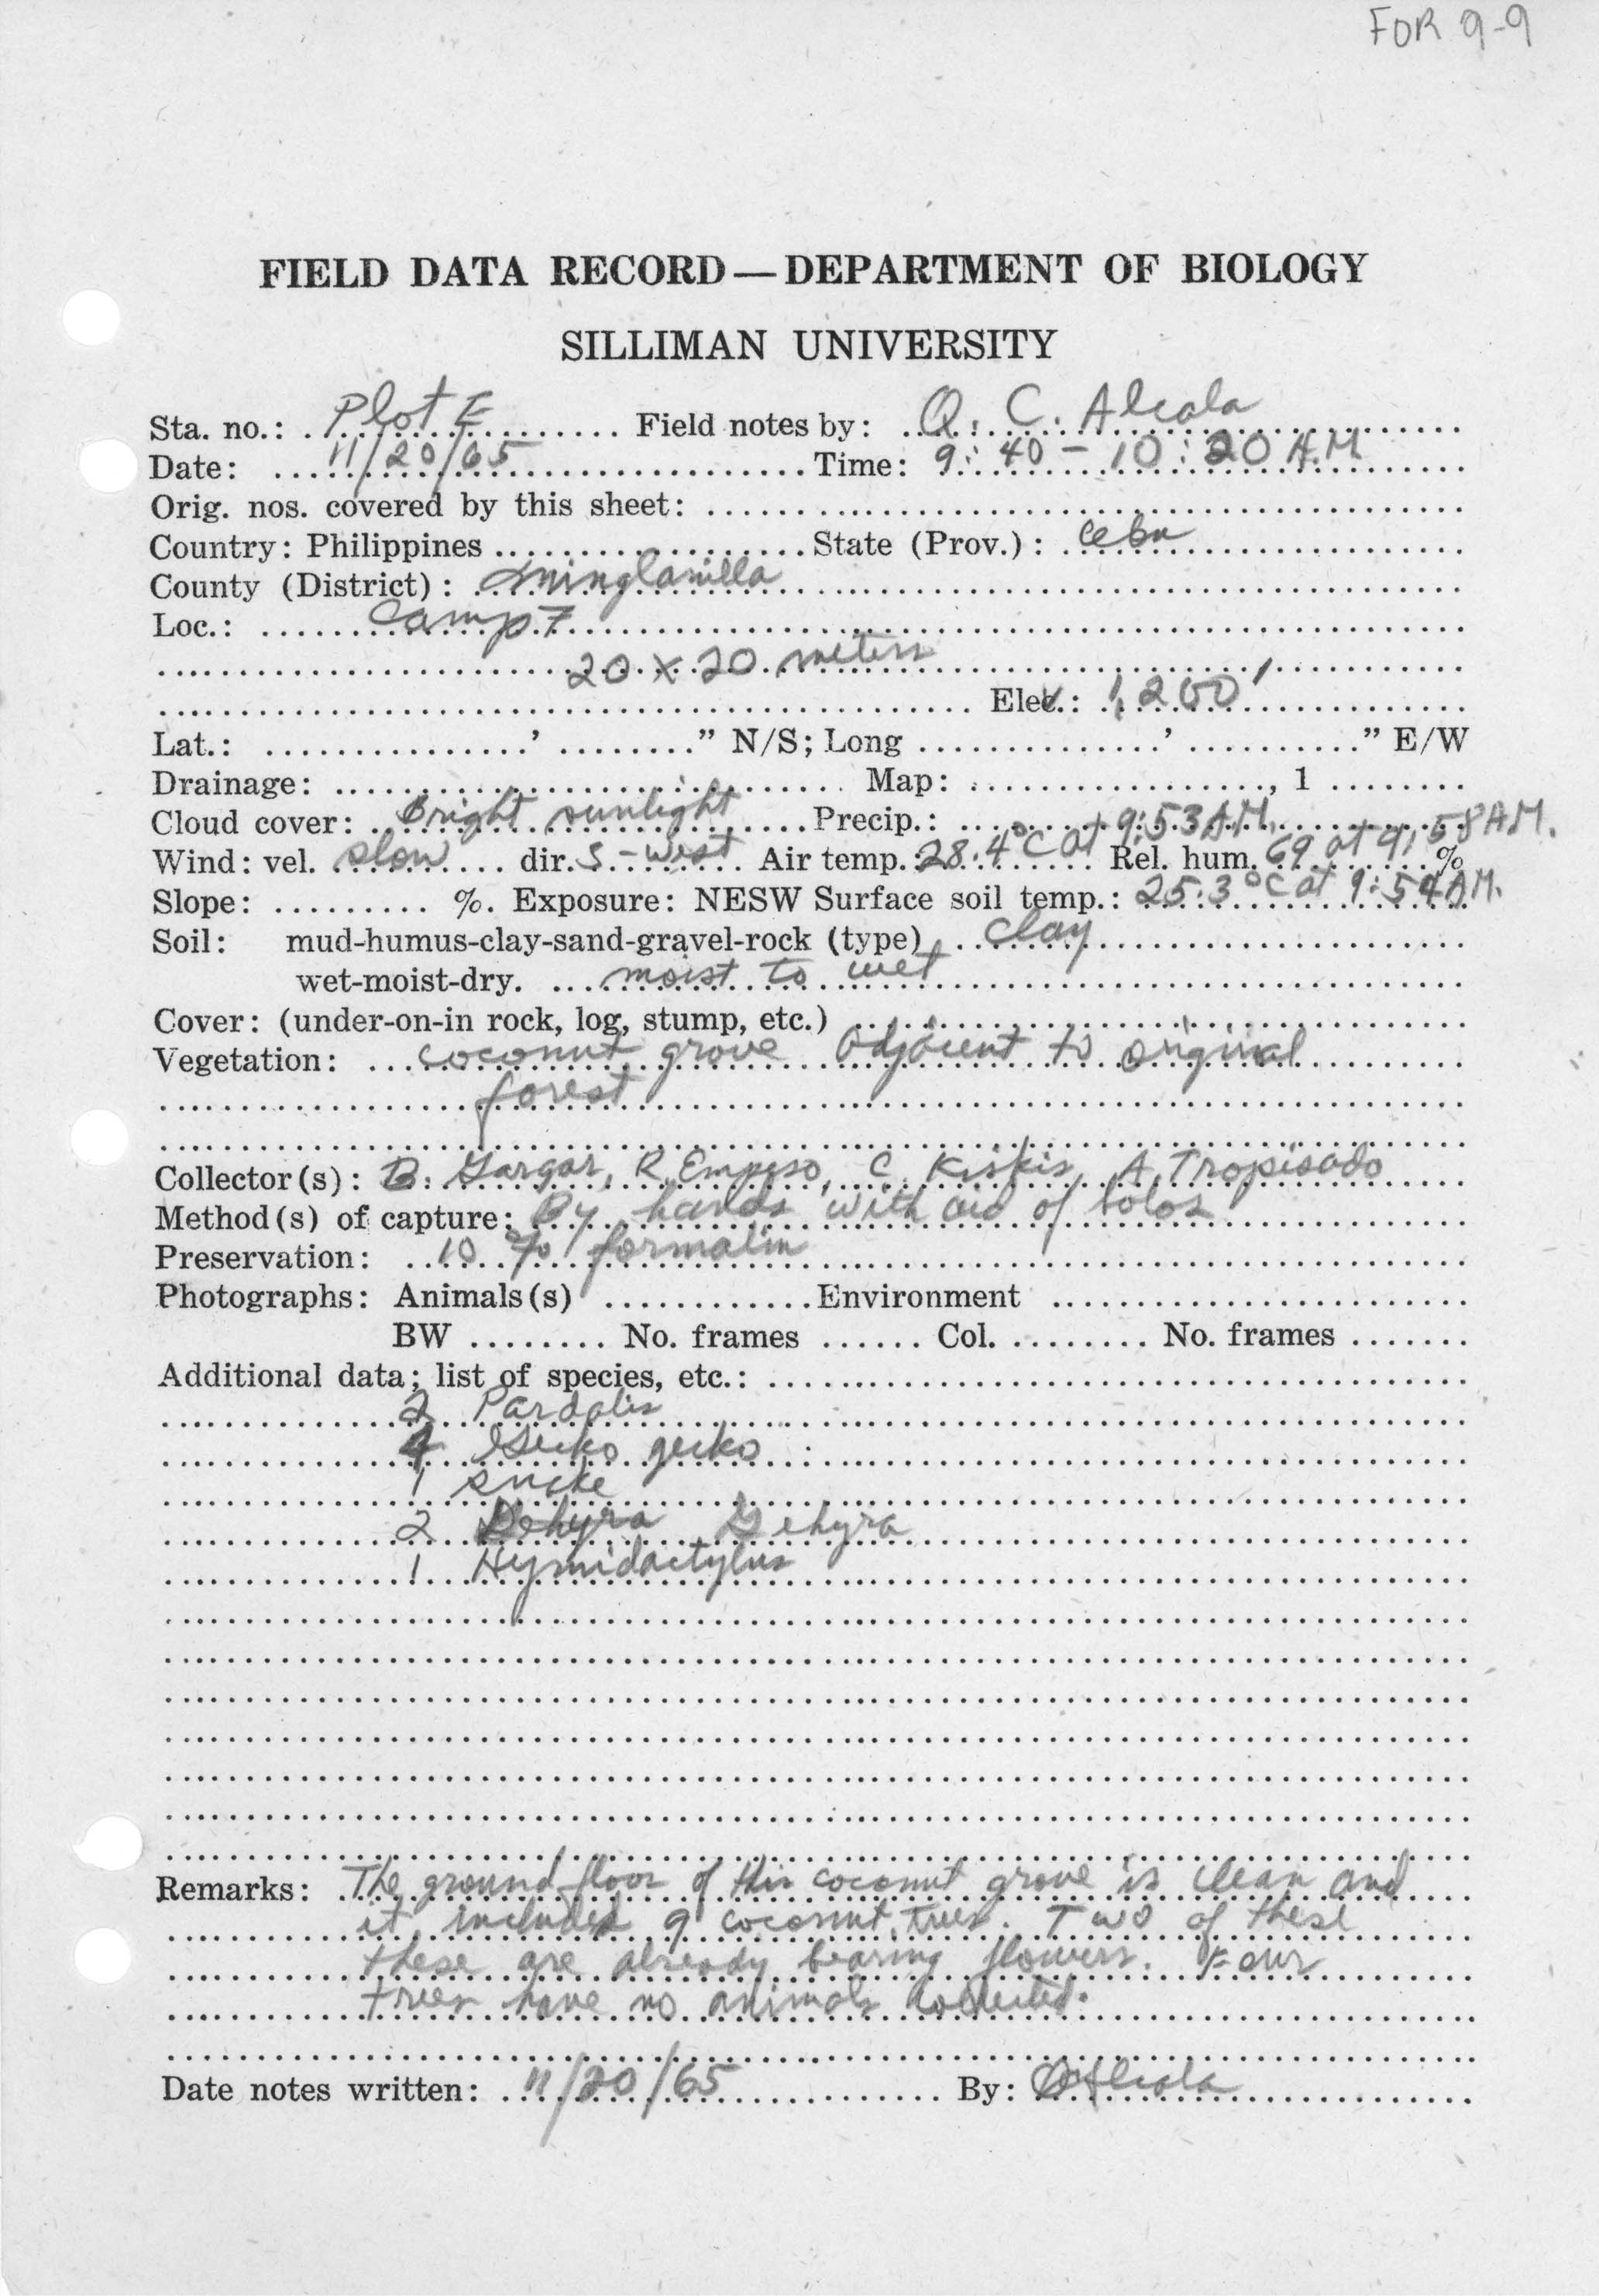 FOR 9-9
FIELD DATA RECORD — DEPARTMENT OF BIOLOGY
SILLIMAN UNIVERSITY
Sta. no.: Plot E Field notes by: Q. C. Alcala
Date: 11/20/65 Time: 9:40 - 10:20 A.M
Orig. nos. covered by this sheet:
Country: Philippines State (Prov.): Cebu
County (District): Minglanilla
Loc.: Camp 7
20 x 20 meters
Elev.: 1,200'
Lat.: ' " N/S; Long ' " E/W
Drainage: Map: , 1
Cloud cover: Bright sunlight Precip.:
Wind: vel. slow dir. S-west Air temp.: 28.4°C at 9:53 AM. Rel. hum. 69 at 9:58 AM. %
Slope: %. Exposure: NESW Surface soil temp.: 25.3°C at 9:54 AM.
Soil: mud-humus-clay-sand-gravel-rock (type) Clay
wet-moist-dry. moist to wet
Cover: (under-on-in rock, log, stump, etc.)
Vegetation: coconut grove adjacent to original
forest
Collector(s): B. Gargar, R. Empeso, C. Kiskis, A. Tropisado
Method(s) of capture: By hands with aid of bolos
Preservation: 10 % formalin
Photographs: Animals(s) Environment
BW No. frames Col. No. frames
Additional data; list of species, etc.:
2 Pardalis
4 Gecko gecko
1 snake
2 Gehyra
1 Hymidactylus
Remarks: The ground floor of this coconut grove is clean and
it includes 9 coconut trees. Two of these
these are already bearing flowers. Four
trees have no animals collected.
Date notes written: 11/20/65 By: QAlcala